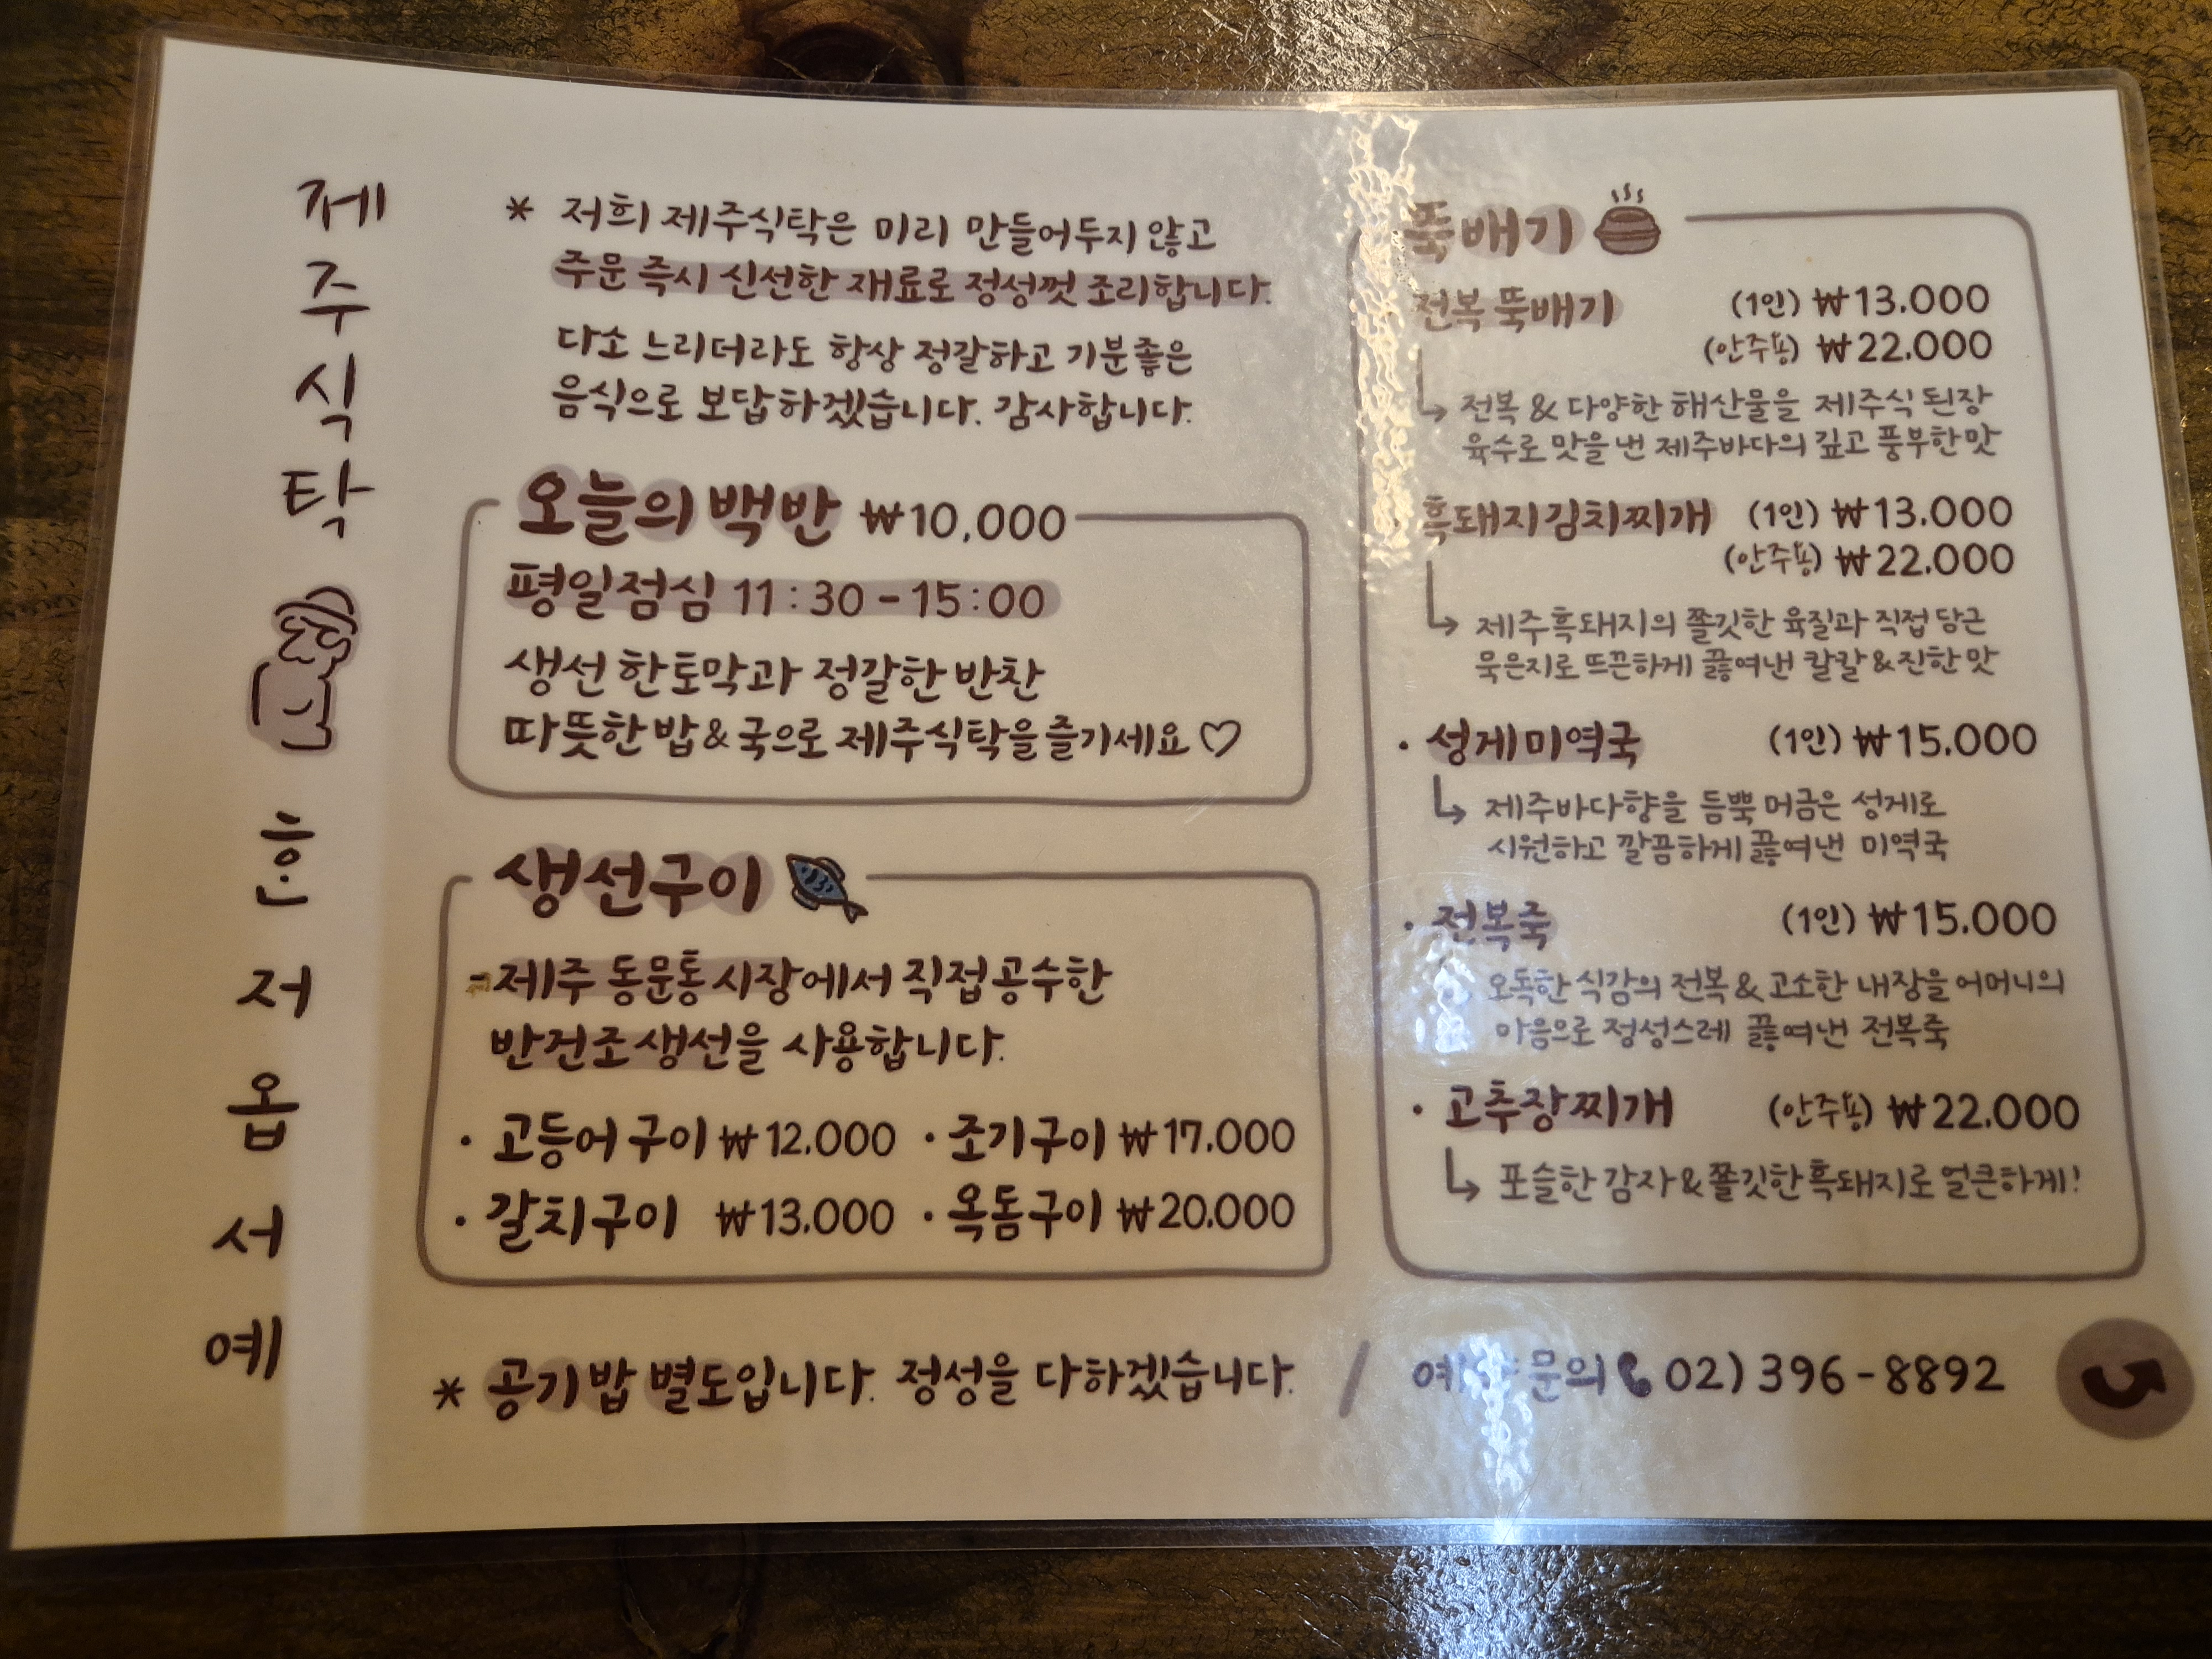 제주식탁
혼저옵서예
* 저희 제주식탁은 미리 만들어두지 않고
주문 즉시 신선한 재료로 정성껏 조리합니다.
다소 느리더라도 항상 정갈하고 기분좋은
음식으로 보답하겠습니다. 감사합니다.
오늘의 백반 ₩10,000
평일점심 11:30-15:00
생선 한토막과 정갈한 반찬
따뜻한 밥&국으로 제주식탁을 즐기세요♡
생선구이
-제주 동문통시장에서 직접공수한
반건조생선을 사용합니다.
· 고등어구이 ₩12.000 · 조기구이 ₩17.000
· 갈치구이 ₩13.000 · 옥돔구이 ₩20.000
* 공기밥 별도입니다. 정성을 다하겠습니다. /
뚝배기
전복뚝배기 (1인) ₩13.000
(안주용) ₩22.000
↳ 전복 & 다양한 해산물을 제주식 된장
육수로 맛을 낸 제주바다의 깊고 풍부한 맛
흑돼지김치찌개 (1인) ₩13.000
(안주용) ₩22.000
↳ 제주흑돼지의 쫄깃한 육질과 직접 담근
묵은지로 뜨끈하게 끓여낸 칼칼&진한 맛
· 성게미역국 (1인) ₩15.000
↳ 제주바다향을 듬뿍 머금은 성게로
시원하고 깔끔하게 끓여낸 미역국
· 전복죽 (1인) ₩15.000
오독한 식감의 전복 & 고소한 내장을 어머니의
마음으로 정성스레 끓여낸 전복죽
· 고추장찌개 (안주용) ₩22.000
↳ 포슬한 감자&쫄깃한 흑돼지로 얼큰하게!
예약문의 02) 396-8892